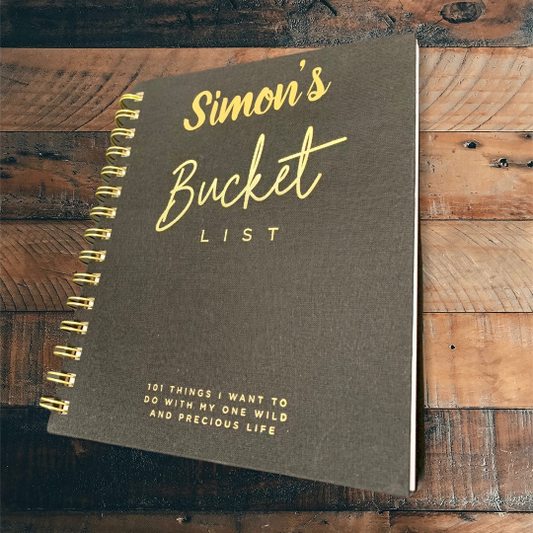 Simon's
Bucket
LIST
101 THINGS I WANT TO
DO WITH MY ONE WILD
AND PRECIOUS LIFE